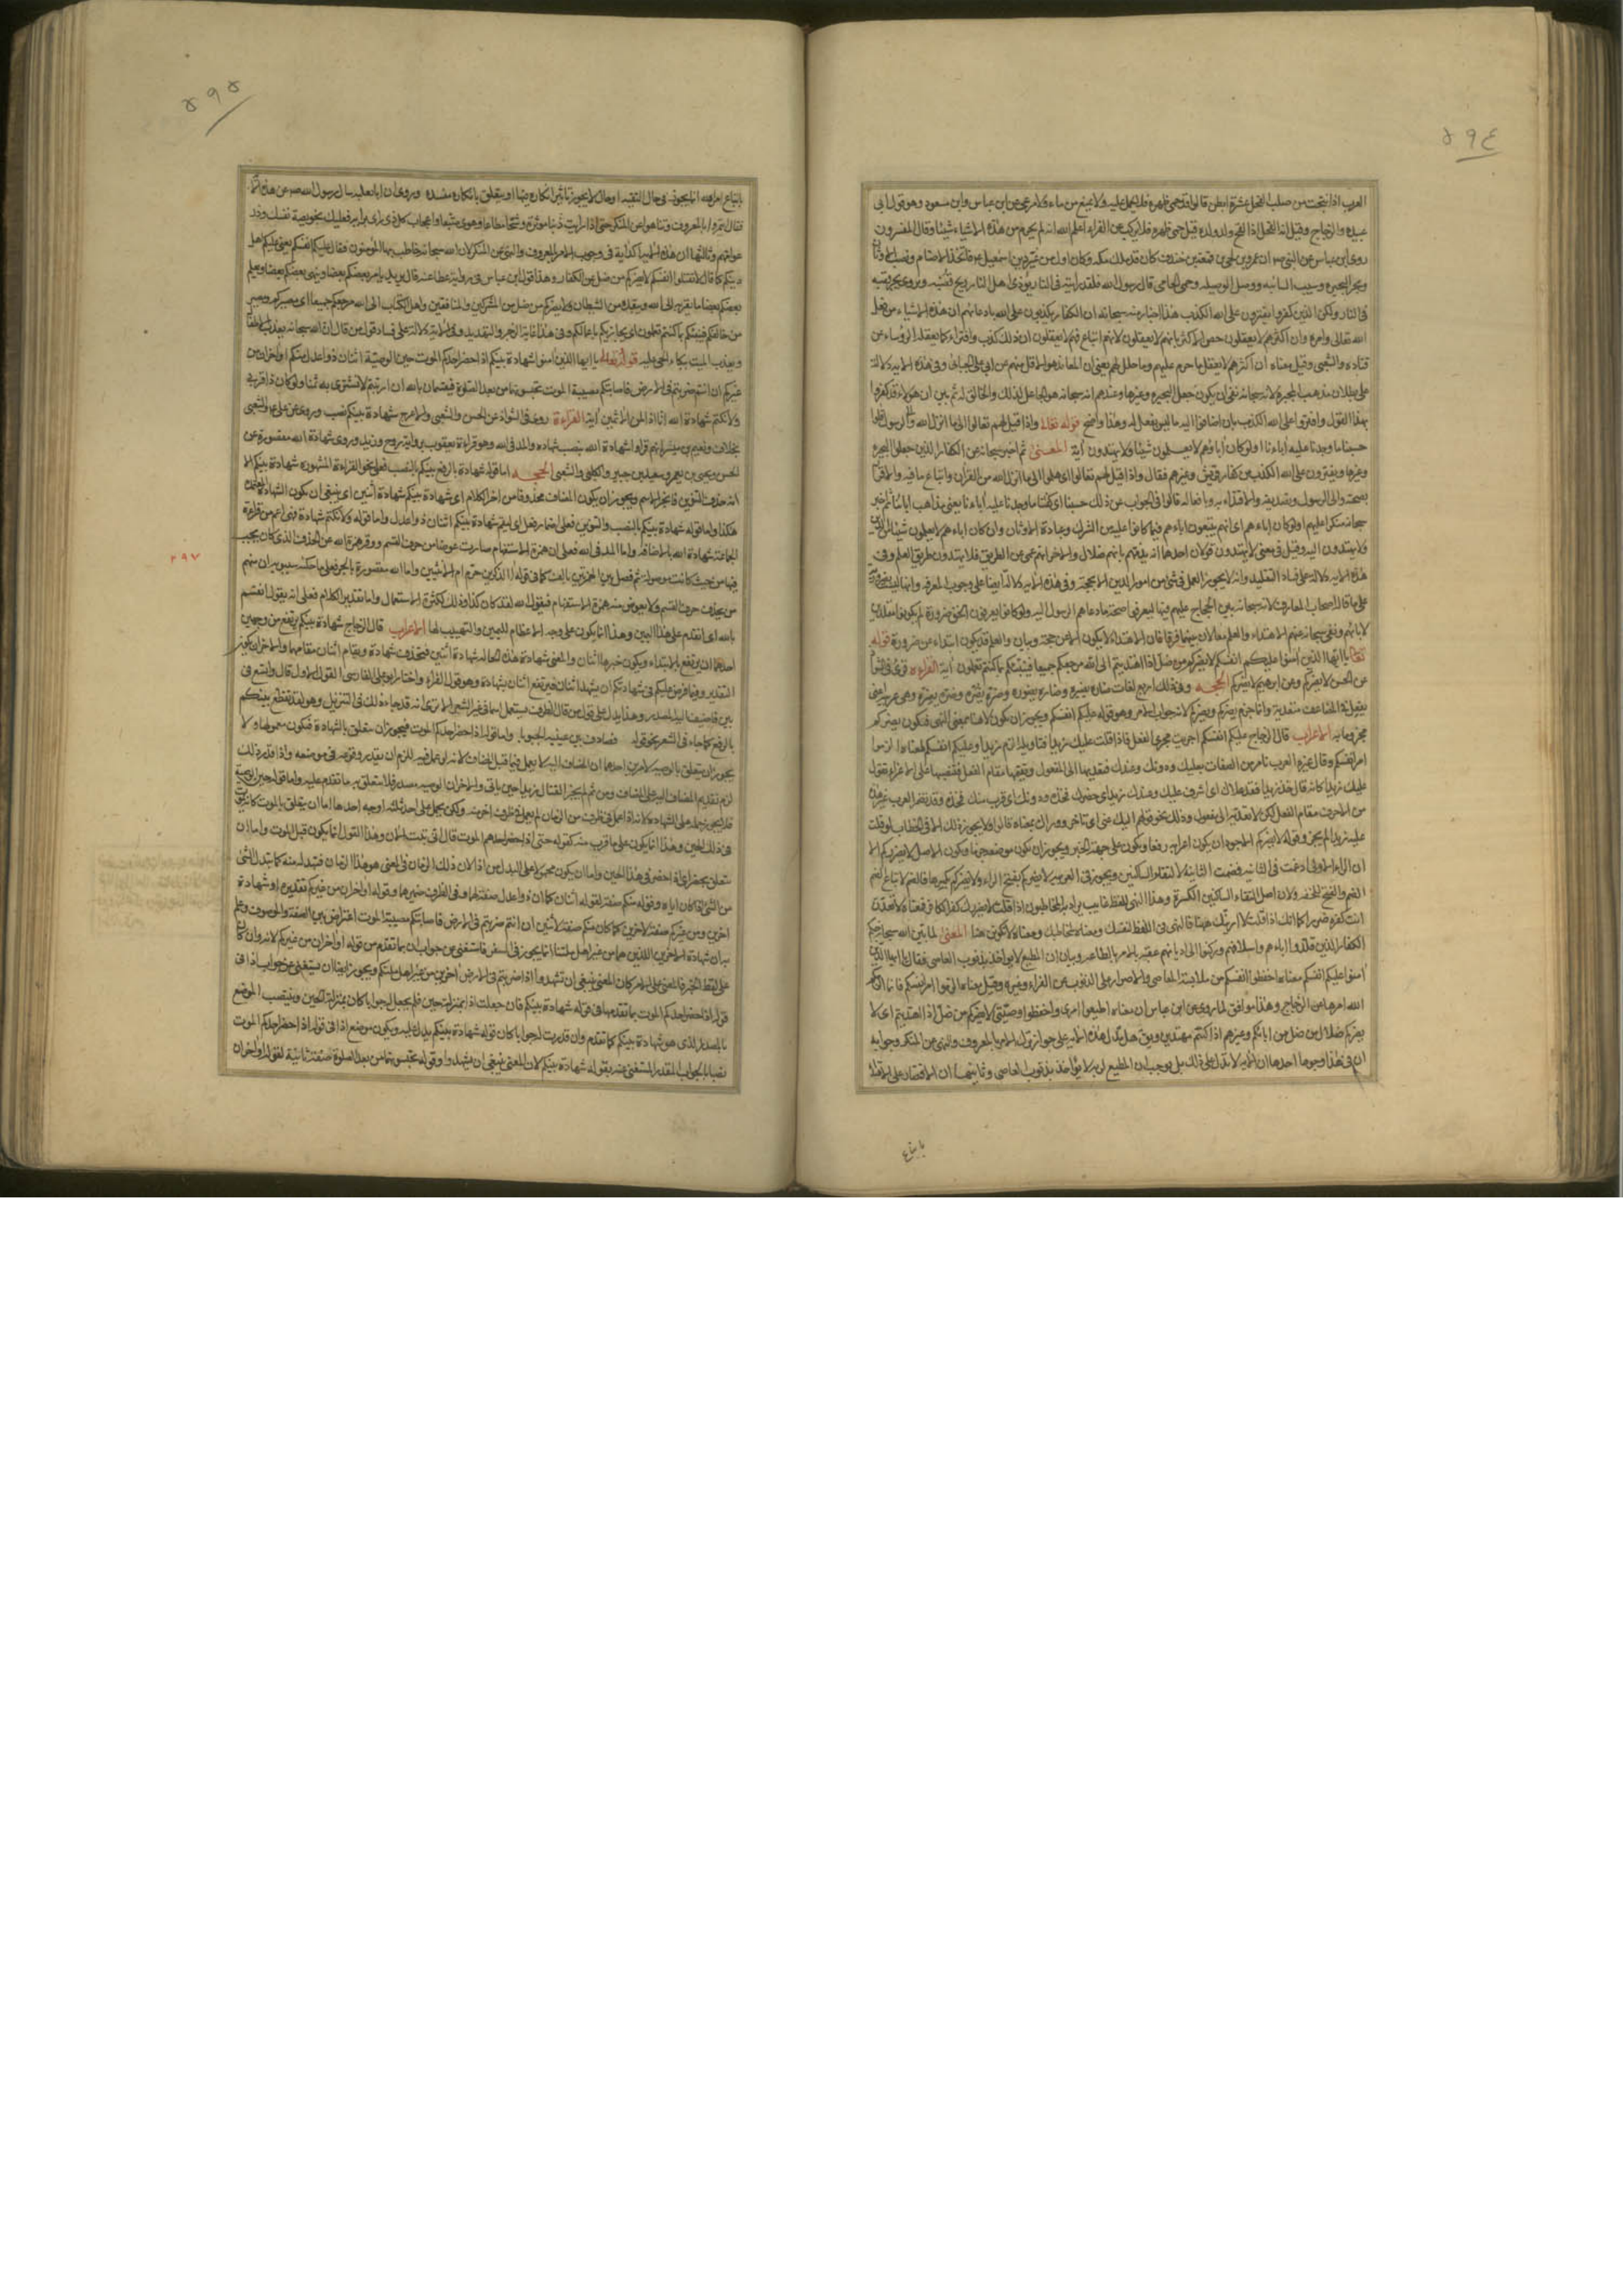 ٥٩٤
العرب اذا نتجت من صلب الفحل عشرة ابطن قالوا قد حمى ظهره فلا يحمل عليه ولا يمنع من ماء ولا مرعى عن ابن عباس وابن مسعود وهو قول ابى
عبيدة والزجاج وقيل انه الفحل اذا لقح ولد ولده قيل حمى ظهره فلا يركب عن الفراء اعلم الله انه لم يحرم من هذه الاشياء شيئا وقال المفسرون
روى ابن عباس عن النبى ص ان عمرو بن لحى بن قمعة بن خندف كان قد ملك مكة وكان اول من غير دين اسمعيل فاتخذ الاصنام ونصب الاوثان
وبحر البحيرة وسيب السائبة ووصل الوصيلة وحمى الحامى قال رسول الله فلقد رأيته فى النار يؤذى اهل النار ريح قصبه ويروى يجر قصبه
فى النار ولكن الذين كفروا يفترون على الله الكذب هذا اخبار منه سبحانه ان الكفار يكذبون على الله بادعائهم ان هذه الاشياء من فعل
الله تعالى وامره وان اكثرهم لا يعقلون خص الاكثر بانهم لا يعقلون لانهم اتباع فهم لا يعقلون ان ذلك كذب وافتراء كما يعقله الرؤساء عن
قتادة والشعبى وقيل معناه ان اكثرهم لا يعقل ما حرم عليهم وما حلل لهم يعنى ان المعاند هو الاقل منهم عن ابى على الجبائى وفى هذه الاية دلالة
على بطلان مذهب المجبرة لانه سبحانه نفى ان يكون جعل البحيرة وغيرها وعندهم انه سبحانه هو الجاعل لذلك والخالق له ثم بين ان هؤلاء قد كفروا
بهذا القول وافتروا على الله الكذب بان اضافوا اليه ما ليس بفعل له وهذا واضح قوله تعالى واذا قيل لهم تعالوا الى ما انزل الله والى الرسول قالوا
حسبنا ما وجدنا عليه اباءنا اولو كان اباؤهم لا يعلمون شيئا ولا يهتدون آية المعنى ثم اخبر سبحانه عن الكفار الذين جعلوا البحيرة
وغيرها ويفترون على الله الكذب من كفار قريش وغيرهم فقال واذا قيل لهم تعالوا اى هلموا الى ما انزل الله من القرآن واتباع ما فيه والاقرار
بصحته والى الرسول وتصديقه والاقتداء به وبافعاله قالوا فى الجواب عن ذلك حسبنا اى كفانا ما وجدنا عليه اباءنا يعنى مذاهب ابائنا ثم اخبر
سبحانه منكرا عليهم اولو كان اباءهم اى انهم يتبعون اباءهم فيما كانوا عليه من الشرك وعبادة الاوثان وان كان اباءهم لا يعلمون شيئا من الدين
ولا يهتدون اليه وقيل فى معنى لا يهتدون قولان احدهما انه يذمهم بانهم ضلال والاخر انهم عمى عن الطريق فلا يهتدون طريق العلم وفى
هذه الاية دلالة على فساد التقليد وانه لا يجوز العمل فى شىء من امور الدين الا بحجة وفى هذه الاية دلالة ايضا على وجوب المعرفة وانها ليست ضرورية
على ما قاله اصحاب المعارف لانه سبحانه بين الحجاج عليهم فيها ليعرفوا صحة ما دعاهم الرسول اليه ولو كانوا يعرفون الحق ضرورة لم يكونوا مقلدين
لابائهم ونفى سبحانه عنهم الاهتداء والعلم معا لان بينهما فرقا فان الاهتداء لا يكون الا عن حجة وبيان والعلم قد يكون ابتداء عن ضرورة قوله
تعالى يا ايها الذين آمنوا عليكم انفسكم لا يضركم من ضل اذا اهتديتم الى الله مرجعكم جميعا فينبئكم بما كنتم تعملون آية القراءة قرئ فى الشواذ
عن الحسن لا يضركم وعن ابراهيم لا يضركم الحجة وفى ذلك اربع لغات ضاره يضيره وضاره يضوره وضره يضره وضره يضره وهى عربية اعنى
يفعل فى المضاعف متعدية وانما جزم يضركم ويضركم لانه جواب الامر وهو قوله عليكم انفسكم ويجوز ان يكون لا هنا بمعنى النهى فيكون يضركم
مجزوما به الاعراب قال الزجاج عليكم انفسكم اجريت مجرى الفعل فاذا قلت عليك زيدا فتأويله الزم زيدا وعليكم انفسكم فمعناه الزموا
امر انفسكم وقال غيره العرب تأمر من الصفات بعليك ودونك وعندك فتعديها الى المفعول وتقيمها مقام الفعل فتنصب بها على الاغراء تقول
عليك زيدا كانه قال خذ زيدا فقد علاك اى اشرف عليك وعندك زيدا اى حضرك فخذه ودونك اى قرب منك فخذه وقد يقيم العرب غير هذه
من الاحرف مقام الفعل لكن لا تعديه الى مفعول وذلك نحو قولهم اليك عنى اى تأخر ووراءك بمعناه قالوا ولا يجوز ذلك الا فى الخطاب لو قلت
عليه زيدا لم يجز وقوله لا يضركم الاجود ان يكون اعرابه رفعا ويكون على جهة الخبر ويجوز ان يكون موضعه جزما ويكون الاصل لا يضرركم الا
ان الراء الاولى ادغمت فى الثانية فضمت الثانية لالتقاء الساكنين ويجوز فى العربية لا يضركم بفتح الراء ولا يضركم بكسرها فالضم لاتباع الضم
الضم والفتح للخفة والكسر لان اصل التقاء الساكنين الكسرة وهذا النهى للفظ غائب يراد به المخاطبون اذا قلت لا يضررك كفر الكافر فمعناه لا تعدن
انت كفره ضررا كما انك اذا قلت لا ارينك ههنا فالنهى فى اللفظ لنفسك ومعناه لمخاطبك ومعناه لا تكونن ههنا المعنى لما بين الله سبحانه حكم
الكفار الذين قلدوا اباءهم واسلافهم وركنوا الى اديانهم عقبه بالامر بالطاعة وبيان ان المطيع لا يؤاخذ بذنوب العاصى فقال يا ايها الذين
آمنوا عليكم انفسكم معناه احفظوا انفسكم من ملابسة المعاصى والاصرار على الذنوب عن الفراء وغيره وقيل معناه الزموا امر انفسكم فانما الزمكم
الله امرها عن الزجاج وهذا موافق لما روى عن ابن عباس ان معناه اطيعوا امرى واحفظوا وصيتى لا يضركم من ضل اذا اهتديتم اى لا
يضركم ضلال من ضل من ابائكم وغيرهم اذا كنتم مهتدين ويق هل تدل هذه الاية على جواز ترك الامر بالمعروف والنهى عن المنكر وجوابه
ان فى هذا وجوها احدها ان الاية لا تدل على ذلك بل توجب ان المطيع لربه لا يؤاخذ بذنوب العاصى وثانيتها ان الاقتصار على الاهتداء
باتباع
٥٩٥
باتباع امر الله انما يجوز فى حال التقية او حال لا يجوز تأثير انكاره فيها او يتعلق بانكاره مفسدة وروى ان ابا ثعلبة سال رسول الله ص عن هذه الاية
فقال ائتمروا بالمعروف وتناهوا عن المنكر حتى اذا رايت دنيا مؤثرة وشحا مطاعا وهوى متبعا واعجاب كل ذى رأى برأيه فعليك بخويصة نفسك وذر
عوامهم وثالثها ان هذه اوكد آية فى وجوب الامر بالمعروف والنهى عن المنكر لان الله سبحانه خاطب بها المؤمنون فقال عليكم انفسكم يعنى عليكم اهل
دينكم كما قال لا تقتلوا انفسكم لا يضركم من ضل من الكفار وهذا قول ابن عباس فى رواية عطا عنه قال يريد يأمر بعضكم بعضا وينهى بعضكم بعضا ويعلم
بعضكم بعضا ما يقربه الى الله ويبعده من الشيطان ولا يضركم من ضل من المشركين والمنافقين واهل الكتاب الى الله مرجعكم جميعا اى مصيركم ومصير
من خالفكم فينبئكم بما كنتم تعملون اى يجازيكم باعمالكم وفى هذا غاية الزجر والتهديد وفى الاية دلالة على فساد قول من قال ان الله سبحانه يعذب الاطفال
ويعذب الميت ببكاء الحى عليه قوله تعالى يا ايها الذين آمنوا شهادة بينكم اذا حضر احدكم الموت حين الوصية اثنان ذوا عدل منكم او اخران من
غيركم ان انتم ضربتم فى الارض فاصابتكم مصيبة الموت تحبسونهما من بعد الصلوة فيقسمان بالله ان ارتبتم لا نشترى به ثمنا ولو كان ذا قربى
ولا نكتم شهادة الله انا اذا لمن الاثمين آية القراءة روى فى الشواذ عن الحسن والشعبى والاعرج شهادة بينكم نصب وروى عن على ع والشعبى
بخلاف ونعيم بن ميسرة انهم قراوا شهادة الله بنصب شهادة والمد فى الله وهو قراءة يعقوب برواية روح وزيد وروى شهادة الله مقصورة عن
الحسن ويحيى بن يعمر وسعيد بن جبير والكلبى والشعبى الحجة اما قوله شهادة بالرفع بينكم بالنصب فعلى نحو القراءة المشهورة شهادة بينكم الا
انه حذف التنوين فانجر الاسم ويجوز ان يكون المضاف محذوفا من اخر الكلام اى شهادة بينكم شهادة اثنين اى ينبغى ان يكون الشهادة المعتمدة
هكذا واما قوله شهادة بينكم بالنصب والتنوين فعلى اضمار فعل اى ليقم شهادة بينكم اثنان ذوا عدل واما قوله ولا نكتم شهادة فهى اعم من قراءة
الجماعة شهادة الله بالاضافة واما المد فى الله فعلى ان همزة الاستفهام صارت عوضا من حرف القسم ووقر همزة الله عن الحذف الذى كان يجب
فيها من حيث كانت موصولة ثم فصل بين الهمزتين بالف كما فى قوله آلذكرين حرم ام الانثيين واما الله مقصورة بالجر فعلى ما حكاه سيبويه ان منهم
من يحذف حرف القسم ولا يعوض منه همزة الاستفهام فيقول الله لقد كان كذا وذلك لكثرة الاستعمال واما تقدير الكلام فعلى انه يقول انقسم
بالله اى انقدم على هذا اليمين وهذا انما يكون على وجه الاعظام لليمين والتهييب لها الاعراب قال الزجاج شهادة بينكم يرتفع من وجهين
احدهما ان يرتفع بالابتداء ويكون خبرها اثنان والمعنى شهادة هذه الحالة شهادة اثنين فيحذف شهادة ويقام اثنان مقامها والاخر ان يكون
التقدير وفيما فرض عليكم فى شهادتكم ان يشهد اثنان فيرتفع اثنان بشهادة وهو قول الفراء واختار ابو على الفارسى القول الاول قال واتسع فى
بين فاضيف اليه المصدر وهذا يدل على قول من قال الظرف يستعمل اسما فى غير الشعر الا ترى انه قد جاء ذلك فى التنزيل وهو لقد تقطع بينكم
بالرفع كما جاء فى الشعر نحو قوله فصادف بين عينيه الجبوبا واما قوله اذا حضر احدكم الموت فيجوز ان يتعلق بالشهادة فيكون معمولها ولا
يجوز ان يتعلق بالوصية لامرين احدهما ان المضاف اليه لا يعمل فيما قبل المضاف لانه لو عمل فيه للزم ان يقدر وقوعه فى موضعه واذا قدر ذلك
لزم تقديم المضاف اليه على المضاف ومن ثم لم يجز القتال زيدا حين ياتى والاخر ان الوصية مصدر فلا يتعلق به ما تقدم عليه واما قوله حين الوصية
فلا يجوز حمله على الشهادة لانه اذا عمل فى ظرف من الزمان لم يعمل فى ظرف اخر منه ولكن يحمل على احد ثلثة اوجه احدها اما ان يتعلق بالموت كانه يموت
فى ذلك الحين وهذا انما يكون على ما قرب منه كقوله حتى اذا حضر احدهم الموت قال انى تبت الان وهذا القول انما يكون قبل الموت واما ان
يتعلق بحضر اى اذا حضر فى هذا الحين واما ان يكون محمولا على البدل من اذا لان ذلك الزمان فى المعنى هو هذا الزمان فتبدله منه كما تبدل الشىء
من الشىء اذا كان اياه وقوله منكم صفة لقوله اثنان كما ان ذوا عدل صفتهما وفى الظرف ضميرهما وقوله او اخران من غيركم تقديره او شهادة
اخرين ومن غيركم صفة لاخرين كما كان منكم صفة لاثنين ان انتم ضربتم فى الارض فاصابتكم مصيبة الموت اعتراض بين الصفة والموصوف وعلم
به ان شهادة الاخرين اللذين هما من غير اهل ملتنا انما يجوز فى السفر فاستغنى عن جواب ان بما تقدم من قوله او اخران من غيركم لانه وان كان
على لفظ الخبر فالمعنى على الامر كان المعنى ينبغى ان تشهدوا اذا ضربتم فى الارض اخرين من غير اهل ملتكم ويجوز ايضا ان يستغنى عن جواب اذا فى
قوله اذا حضر احدكم الموت بما تقدمها فى قوله شهادة بينكم فان جعلت اذا بمنزلة حين فلم يجعل له جوابا كان بمنزلة الحين وينتصب الموضع
بالمصدر الذى هو شهادة بينكم كما تقدم وان قدرت له جوابا كان قوله شهادة بينكم يدل عليه ويكون موضع اذا فى قوله اذا حضر احدكم الموت
نصبا بالجواب المقدر المستغنى عنه بقوله شهادة بينكم لان المعنى ينبغى ان تشهدوا وقوله تحبسونهما من بعد الصلوة صفة ثانية لقوله او اخران
٢٩٧